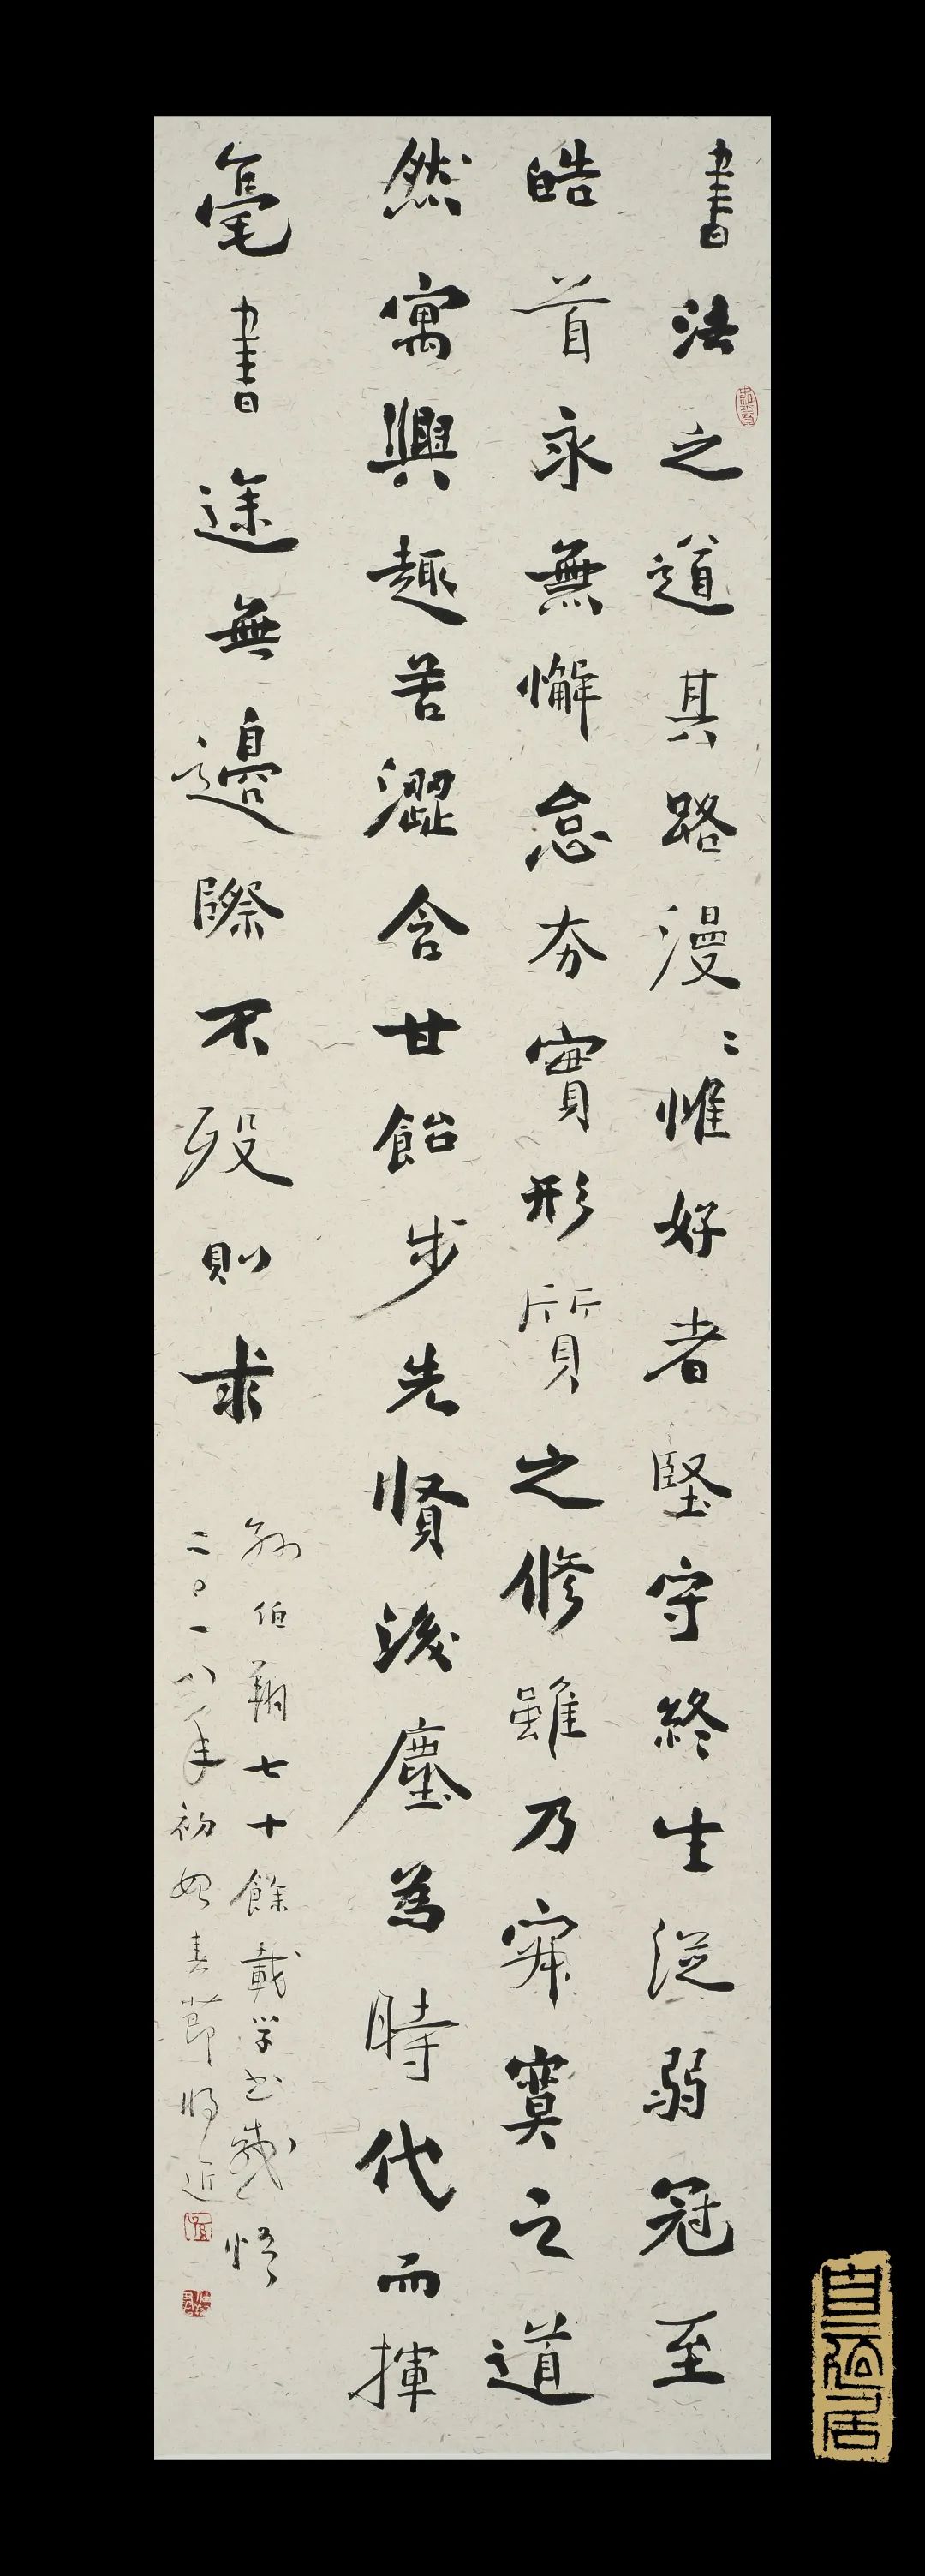 書法之道其路漫〻惟好者堅守終生從弱冠至
皓首永無懈怠夯實形質之修雖乃寂寞之道
然寓興趣苦澀含甘飴步先賢後塵為時代而揮
毫書途無邊際不殁則求
孫伯翔七十餘載学书感悟
二〇一八年初始春節將近